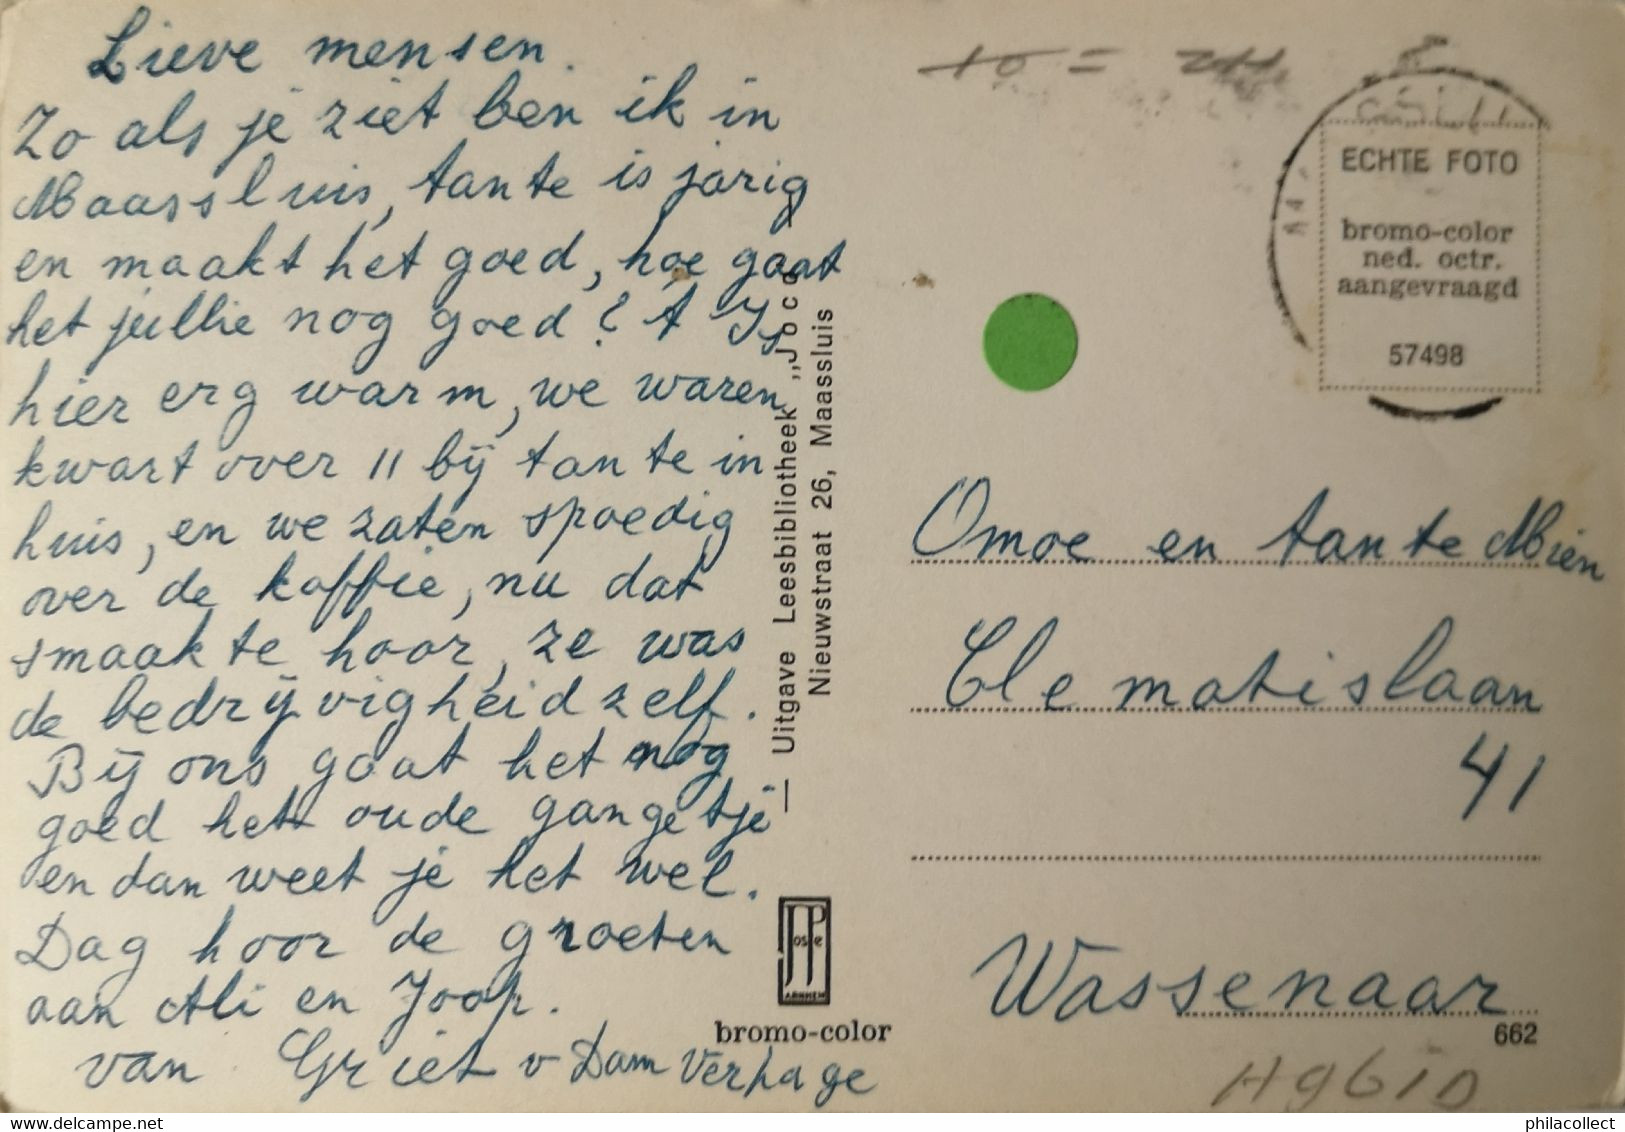 Lieve mensen.
Zo als je ziet ben ik in
Maassluis, tante is jarig
en maakt het goed, hoe gaat
het jullie nog goed? t Is
hier erg warm, we waren
kwart over 11 bij tante in
huis, en we zaten spoedig
over de koffie, nu dat
smaakte hoor, ze was
de bedrijvigheid zelf.
Bij ons gaat het nog
goed het oude gangetje
en dan weet je het wel.
Dag hoor de groeten
aan Ali en Joop.
van Griet v Dam Verhage
— Uitgave Leesbibliotheek „Joco"
Nieuwstraat 26, Maassluis
JosPe
ARNHEM
bromo-color
ECHTE FOTO
bromo-color
ned. octr.
aangevraagd
57498
Omoe en tante Mien
Clematislaan
41
Wassenaar
662
delcampe.net
philacollect